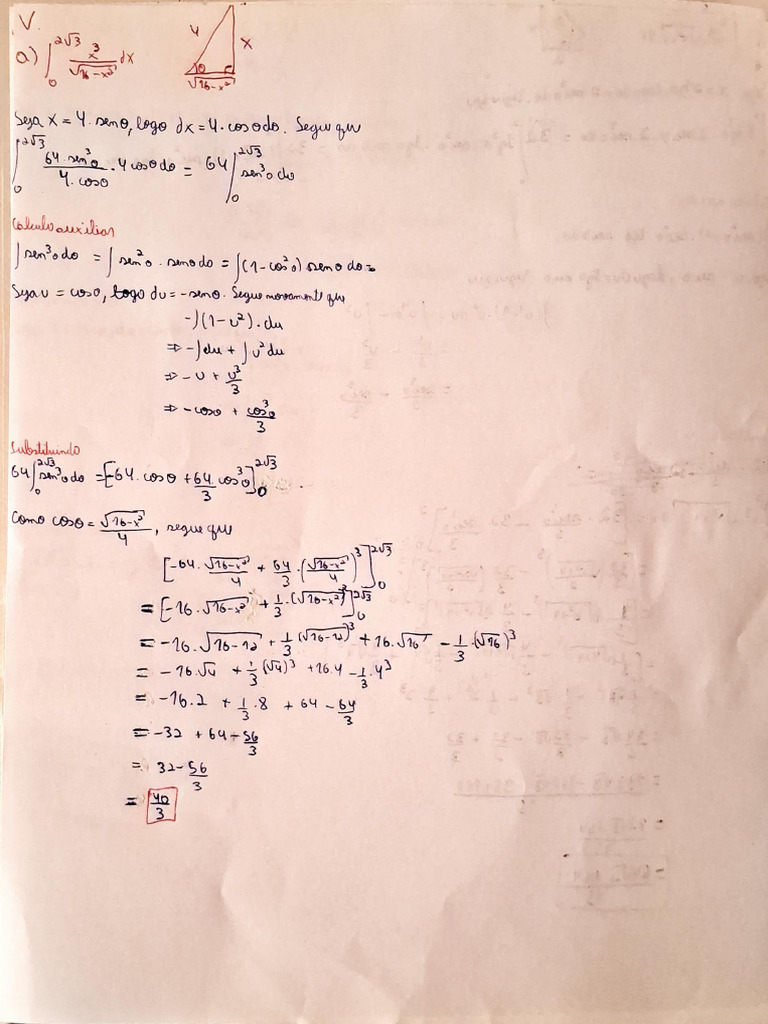 V.
a) ∫₀^{2√3} x³/√(16-x²) dx
4
x
θ
√(16-x²)
Seja x = 4·senθ, logo dx = 4·cosθdθ. Segue que
∫₀^{2√3} 64·sen³θ/(4·cosθ) · 4cosθdθ = 64 ∫₀^{2√3} sen³θdθ
Calculo auxiliar
∫sen³θdθ = ∫sen²θ·senθdθ = ∫(1-cos²θ)senθdθ=
Seja u = cosθ, logo du = -senθ. Segue novamente que
-∫(1-u²)·du
⇒ -∫du + ∫u²du
⇒ -u + u³/3
⇒ -cosθ + cos³θ/3
Substituindo
64∫₀^{2√3} sen³θdθ = [-64·cosθ + 64/3 cos³θ]₀^{2√3}.
Como cosθ = √(16-x²)/4, segue que
[-64·√(16-x²)/4 + 64/3·(√(16-x²)/4)³]₀^{2√3}
= [-16·√(16-x²) + 1/3·(√(16-x²))³]₀^{2√3}
= -16·√(16-12) + 1/3·(√(16-12))³ + 16·√16 - 1/3·(√16)³
= -16·√4 + 1/3(√4)³ + 16·4 - 1/3·4³
= -16·2 + 1/3·8 + 64 - 64/3
= -32 + 64 - 56/3
= 32 - 56/3
= 40/3